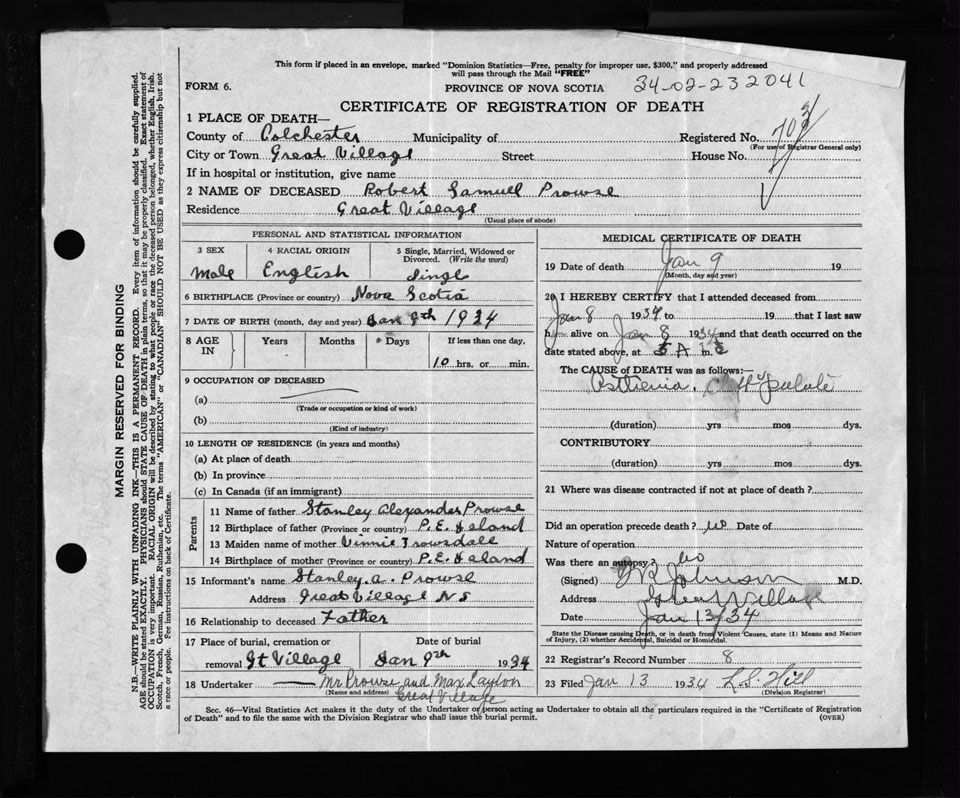 This form if placed in an envelope, marked "Dominion Statistics—Free, penalty for improper use, $300," and properly addressed
will pass through the Mail "FREE"
FORM 6.
PROVINCE OF NOVA SCOTIA
34-02-232041
CERTIFICATE OF REGISTRATION OF DEATH
1 PLACE OF DEATH—
County of Colchester Municipality of Registered No.
(For use of Registrar General only)
City or Town Great Village Street House No.
If in hospital or institution, give name
2 NAME OF DECEASED Robert Samuel Prowse
Residence Great Village
(Usual place of abode)
PERSONAL AND STATISTICAL INFORMATION
3 SEX 4 RACIAL ORIGIN 5 Single, Married, Widowed or
Divorced. (Write the word)
Male English Single
6 BIRTHPLACE (Province or country) Nova Scotia
7 DATE OF BIRTH (month, day and year) Jan 9th 1934
8 AGE IN Years Months Days If less than one day,
10 hrs. or min.
9 OCCUPATION OF DECEASED
(a)
(Trade or occupation or kind of work)
(b)
(Kind of industry)
10 LENGTH OF RESIDENCE (in years and months)
(a) At place of death
(b) In province
(c) In Canada (if an immigrant)
Parents
11 Name of father Stanley Alexander Prowse
12 Birthplace of father (Province or country) P.E. Island
13 Maiden name of mother Vinnie Trowsdale
14 Birthplace of mother (Province or country) P.E. Island
15 Informant's name Stanley. A. Prowse
Address Great Village N S
16 Relationship to deceased Father
17 Place of burial, cremation or Date of burial
removal Gt Village Jan 9th 1934
18 Undertaker Mr Prowse and Max Layton
(Name and address) Great Village
MEDICAL CERTIFICATE OF DEATH
19 Date of death Jan 9 19
(Month, day and year)
20 I HEREBY CERTIFY that I attended deceased from
Jan 8 1934 to 19 that I last saw
h alive on Jan 8 1934 and that death occurred on the
date stated above, at 5 A m.
The CAUSE of DEATH was as follows:—
(duration) yrs mos dys.
CONTRIBUTORY
(duration) yrs mos dys.
21 Where was disease contracted if not at place of death?
Did an operation precede death? no Date of
Nature of operation
Was there an autopsy? no
(Signed) Johnson M.D.
Address Great Village
Date Jan 13/34
State the Disease causing Death, or in death from Violent Causes, state (1) Means and Nature
of Injury, (2) whether Accidental, Suicidal or Homicidal.
22 Registrar's Record Number 8
23 Filed Jan 13 1934 L.S. Hill
(Division Registrar)
Sec. 46—Vital Statistics Act makes it the duty of the Undertaker or person acting as Undertaker to obtain all the particulars required in the "Certificate of Registration
of Death" and to file the same with the Division Registrar who shall issue the burial permit.
(OVER)
MARGIN RESERVED FOR BINDING
N.B.—WRITE PLAINLY WITH UNFADING INK—THIS IS A PERMANENT RECORD. Every item of information should be carefully supplied.
AGE should be stated EXACTLY. PHYSICIANS should STATE CAUSE OF DEATH in plain terms, so that it may be properly classified. Exact statement of
OCCUPATION is very important. RACIAL ORIGIN will be described by stating to what people or race the deceased person belonged, whether English, Irish,
Scotch, French, German, Russian, Ruthenian, etc. The terms "AMERICAN" or "CANADIAN" SHOULD NOT BE USED as they express citizenship but not
a race or people. See instructions on back of Certificate.